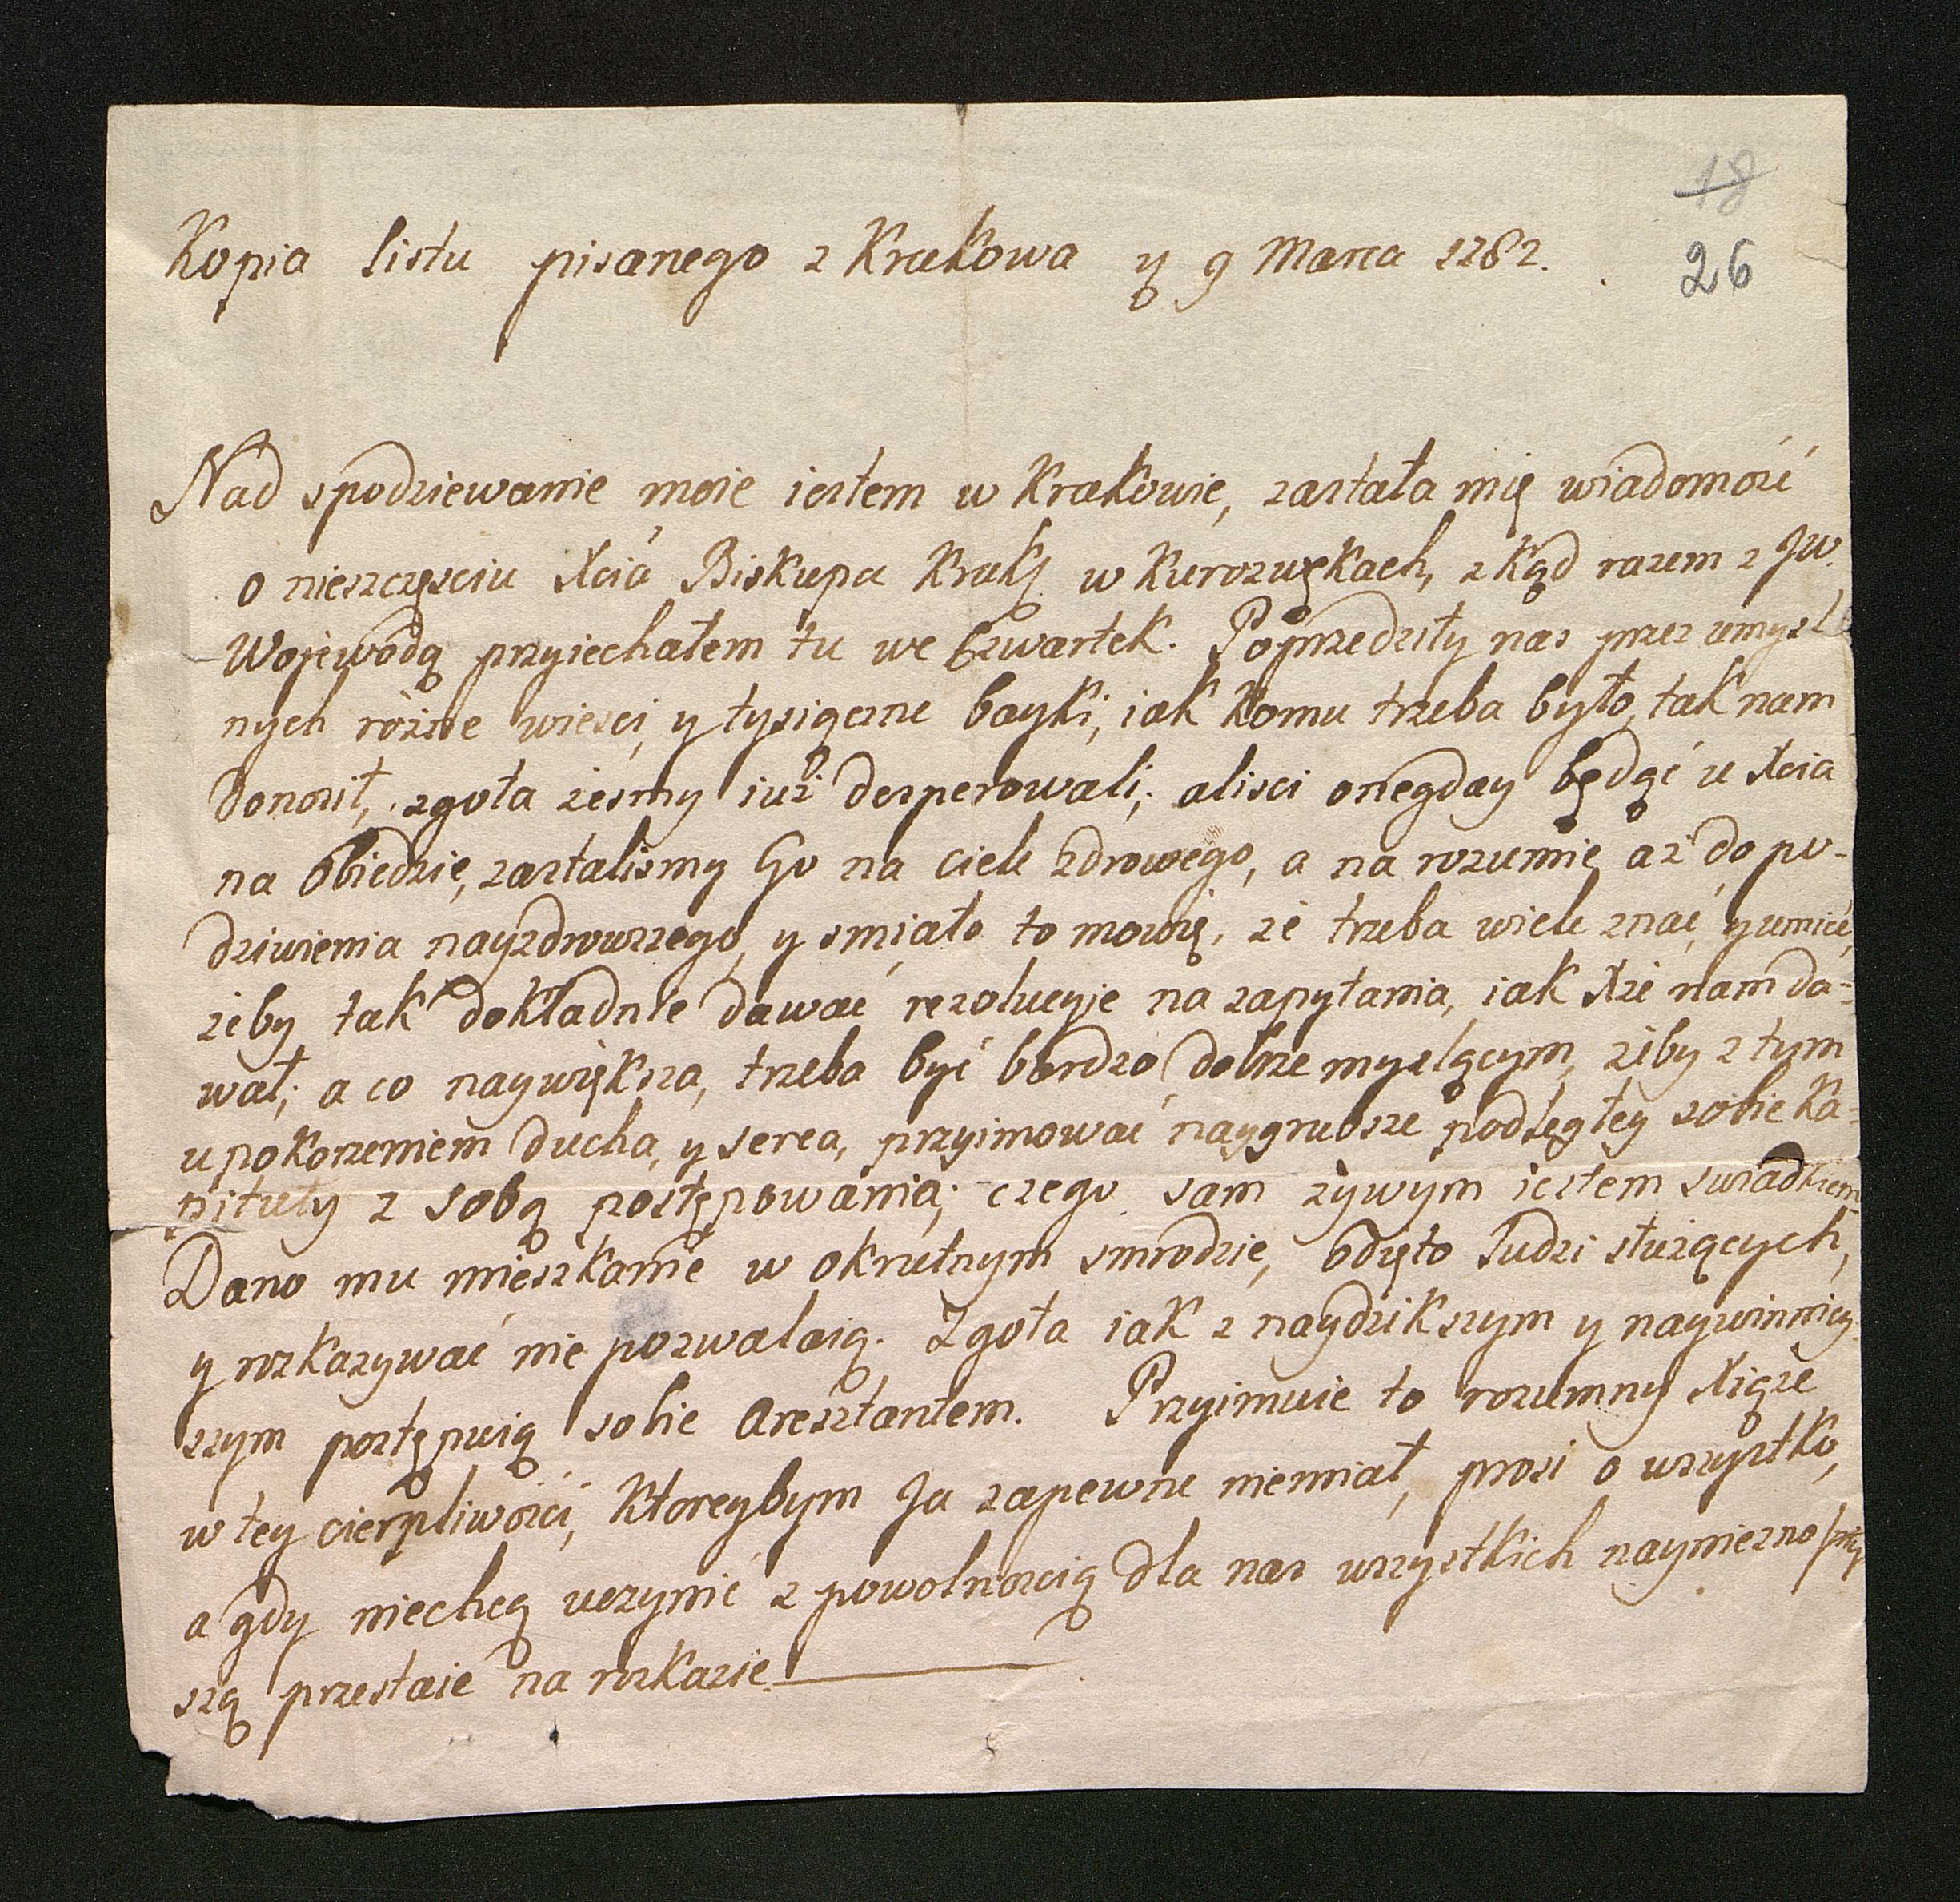 18
26
Kopia listu pisanego z Krakowa y 9 Marca 1782.
Nad spodziewanie moie iestem w Krakowie, zastała mię wiadomość
o nieszczęsciu Xcia Biskupa Krakĝ w Kurozwękach, zkąd razem z JW.
Wojewodą przyiechałem tu we Czwartek. Poprzedziły nas przez umysl
nych rożne wiesci, y tysiączne bayki, iak komu trzeba było, tak nam
donosił, zgoła żesmy iuż desperowali; alisci onegday będąć u Xcia
na obiedzie, zastalismy Go na ciele zdrowego, a na rozumie aż do po-
dziwienia nayzdrowszego, y smiało to mowię, że trzeba wiele znać, y umieć,
żeby tak dokładnie dawać rezolucyje na zapytania, iak Xże nam da-
wał; a co naywiększa, trzeba być bardzo dobrze myslącym, żeby z tym
upokorzeniem ducha, y serca, przyimować naygrubsze podległey sobie Ka-
pituły z sobą postępowania; czego sam żywym iestem swiadkiem
Dano mu mieszkanie w okrutnym smrodzie, odięto ludzi służących,
y rozkazywać nie pozwalaią. Zgoła iak z naydzikszym y naywinniey-
szym postępuią sobie Aresztantem. Przyimuie to rozumny Xiąże
w tey cierpliwości, ktoreybym Ja zapewne niemiał, prosi o wszystko,
a gdy niechcą uczynić z powolnoscią dla nas wszystkich nayniezno/niey
szą przestaie na rozkazie